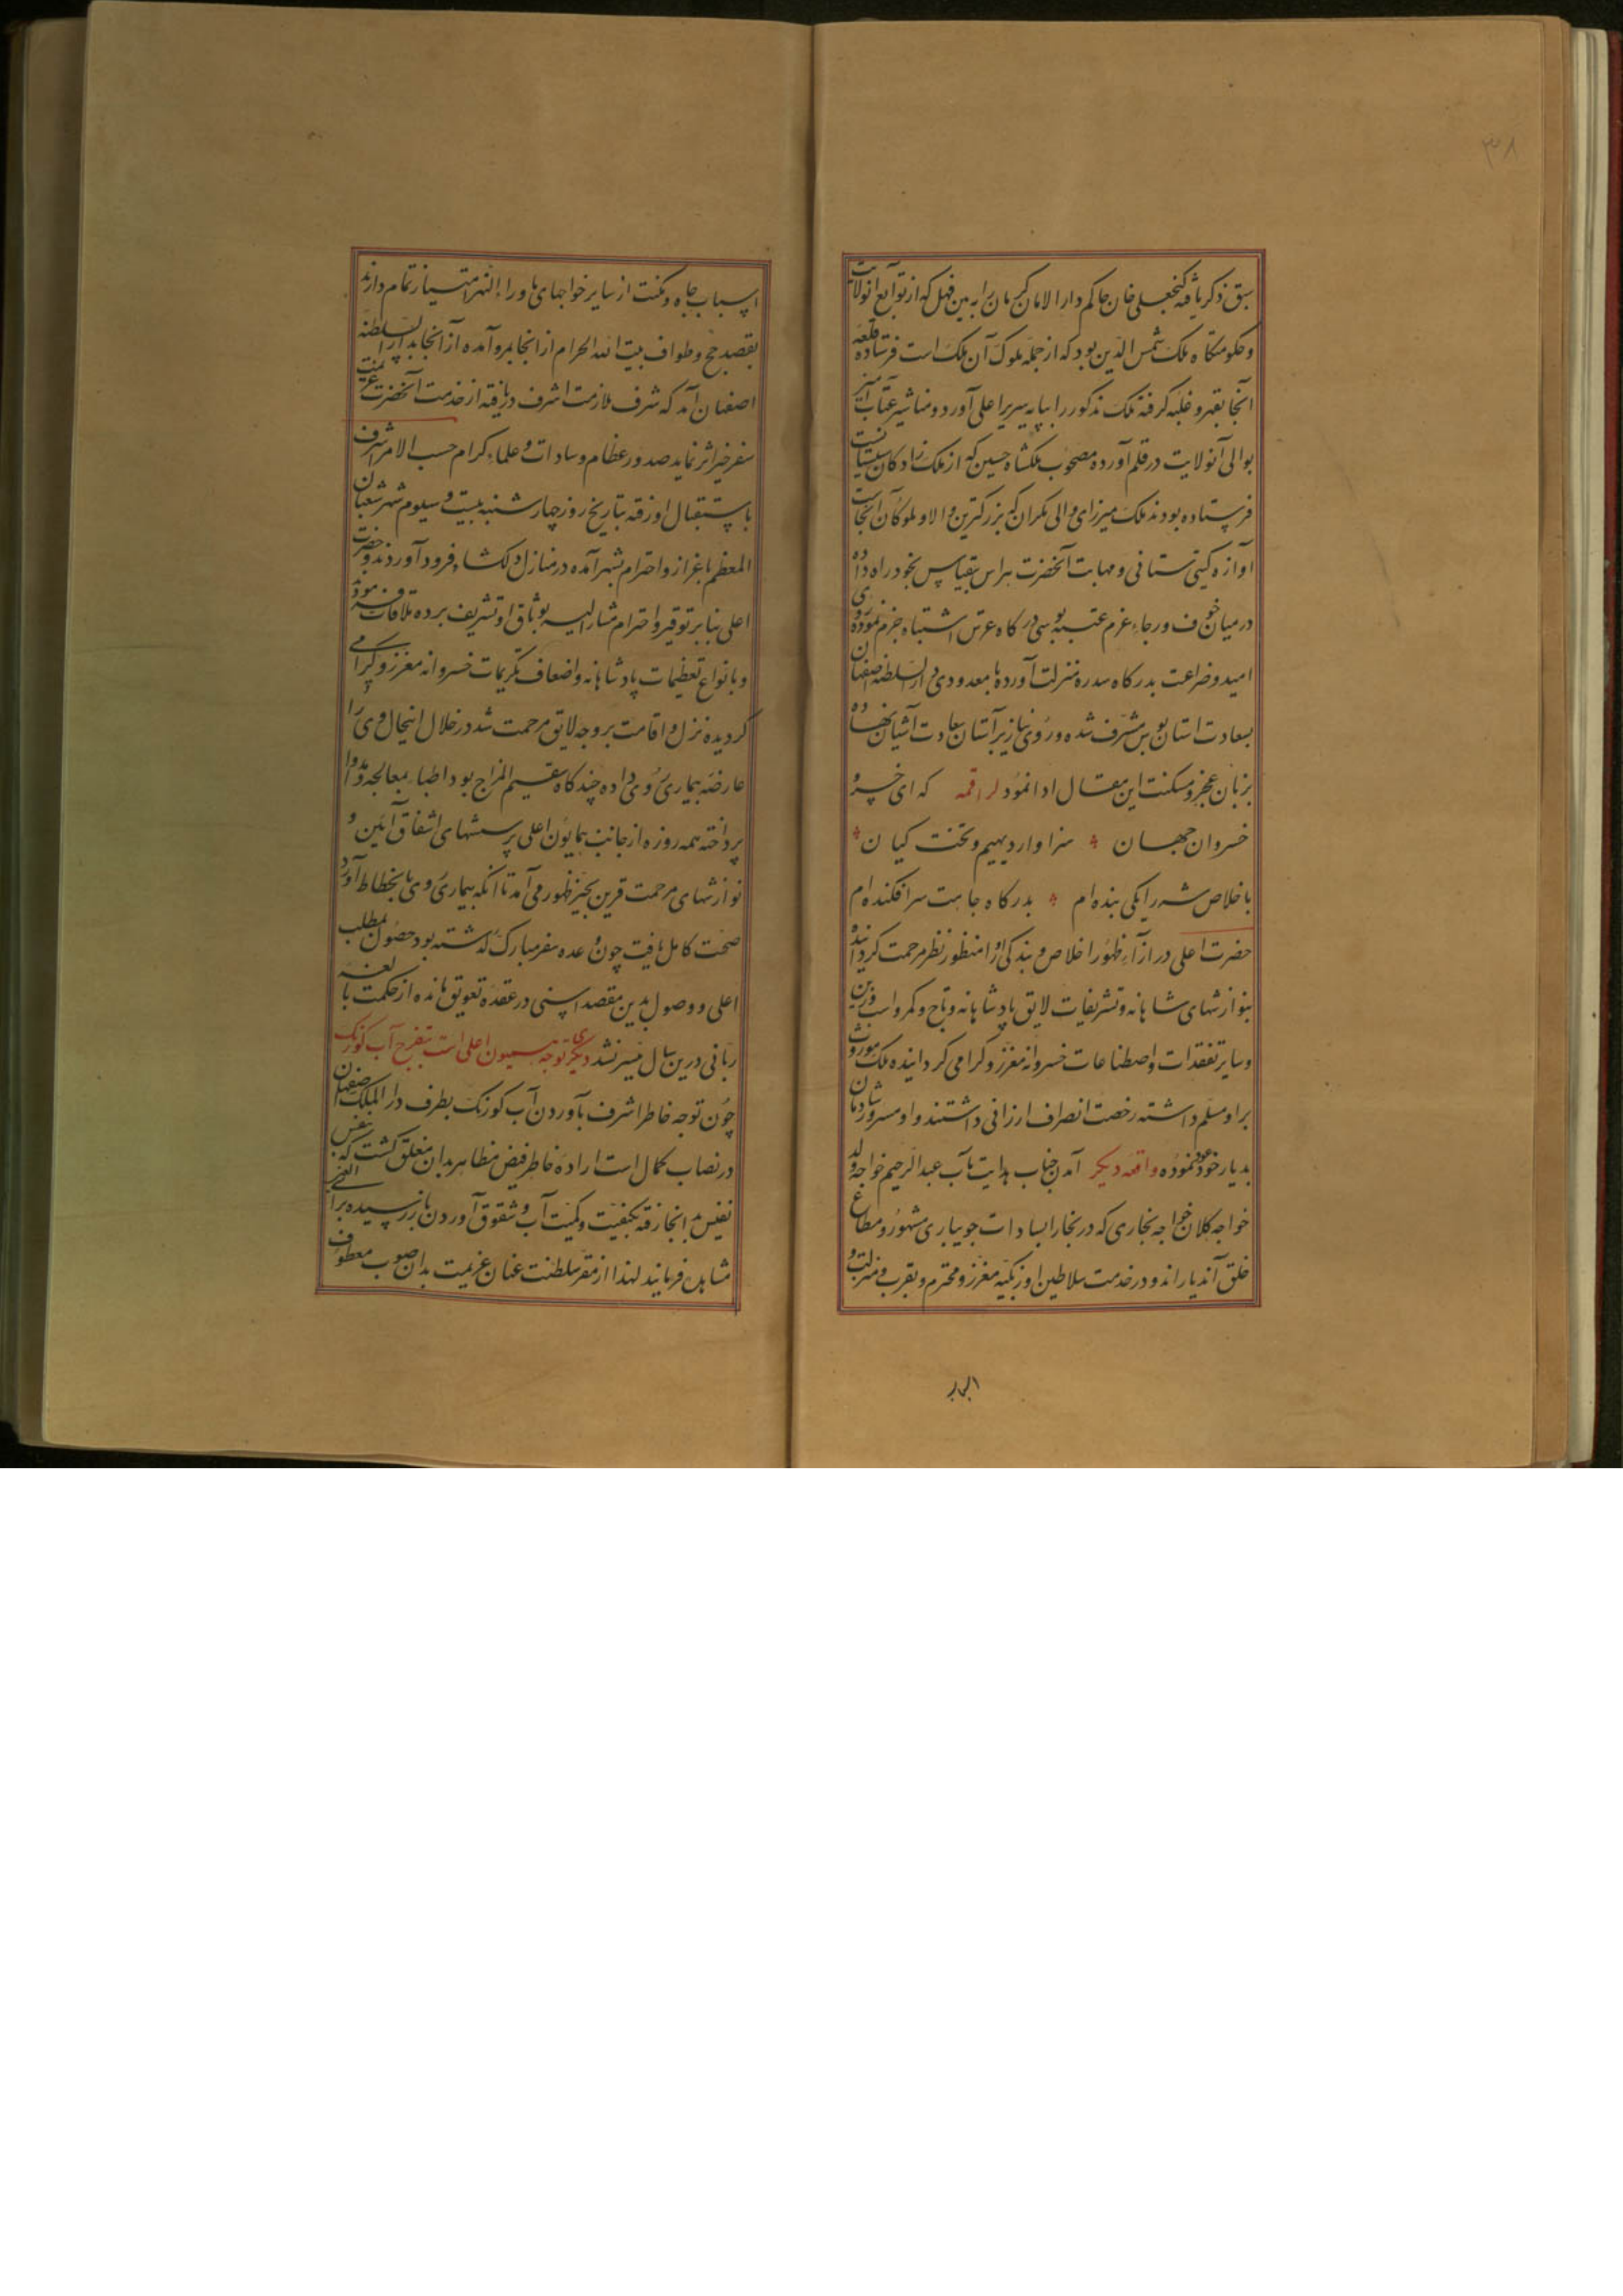 ۳۸
سبق ذکر یافته گنجعلی خان حاکم دار الامان کرمان را به بن فهل که از توابع انولایت
و حکومتگاه ملک شمس الدین بود که از جمله ملوک آن ملک است فرستاده قلعه
آنجا بقهر و غلبه گرفته ملک مذکور را بپایه سریر اعلی آورد و مناشیر عتاب آمیز
بوالی آنولایت در قلم آورده مصحوب ملکشاه حسین که از ملک زادگان سیستانست
فرستاده بودند ملک میرزای والی مکران که بزرگترین والا و ملوک آن آنجاست
آوازه گیتی ستانی و مهابت آنحضرت هراس بیقیاس بخود راه داده
در میان خوف و رجاء عزم عتبه بوسی درگاه عرش اشتباه جزم نموده روی
امید و ضراعت بدرگاه سدره منزلت آورده با معدودی در دار السلطنه اصفهان
بسعادت استان بوس مشرف شده و روی نیاز بر آستان سعادت آشیان نهاده
بزبان عجز و مسکنت این مقال ادا نمود لراقمه که ای خسرو
خسروان جهان سزاوار دیهیم و تخت کیان
باخلاص شه را یکی بنده ام بدرگاه جاهت سرافکنده ام
حضرت اعلی در ازآء ظهور اخلاص و بندگی او را منظور نظر مرحمت گردانیده
بنوازشهای شاهانه و تشریفات لایق پادشاهانه و تاج و کمر و اسب و زین
و سایر تفقدات و اصطناعات خسروانه معزز و گرامی گردانیده ملک موروث
بر او مسلم داشته رخصت انصراف ارزانی داشتند و او مسرور و شادمان
بدیار خود عود نموده واقعه دیگر آمدن جناب هدایت مآب عبد الرحیم خواجه ولد
خواجه کلان خواجه بخاری که در بخارا بسادات جویباری مشهور و مطاع
خلق آندیار اند و در خدمت سلاطین اوزبکیه معزز و محترم و بقرب و منزلت و
اسباب جاه و مکنت از سایر خواجهای ماوراء النهر امتیاز تمام دارند
بقصد حج و طواف بیت الله الحرام از انجا بمرو آمده از آنجا بدار السلطنه
اصفهان آمد که شرف ملازمت اشرف دریافته از خدمت آنحضرت عزیمت
سفر خیر اثر نماید صدور عظام و سادات و علماء کرام حسب الامر اشرف
باستقبال او رفته بتاریخ روز چهارشنبه بیست و سیوم شهر شعبان
المعظم باعزاز و احترام بشهر آمده در منازل دلکشا فرود آوردند و حضرت
اعلی بنابر توقیر و احترام مشار الیه بوثاق او تشریف برده ملاقات فرمود
و بانواع تعظیمات پادشاهانه و اضعاف تکریمات خسروانه معزز و گرامی
گردیده نزل و اقامت بر وجه لایق مرحمت شد در خلال اینحال وی را
عارضه بیماری روی داده چند گاه سقیم المزاج بود اطباء بمعالجه و مداوا
پرداخته همه روزه از جانب همایون اعلی پرسشهای اشفاق آئین و
نوازشهای مرحمت قرین بحیز ظهور می آمد تا آنکه بیماری وی بانحطاط آورد
صحت کامل یافت چون وعده سفر مبارک گذشته بود حصول مطلب
اعلی و وصول بدین مقصد اسنی در عقده تعویق مانده از حکمت بالغه
ربانی درین سال میسر نشد دیگری توجه همیون اعلی است بتفرج آب کورنک
چون توجه خاطر اشرف بآوردن آب کورنک بطرف دار الملک اصفهان
در نصاب کمال است اراده خاطر فیض مظاهر بدان متعلق گشت که بنفس
نفیس بدانجا رفته بکیفیت و کمیت آب و شقوق آوردن باز رسیده برأی العین
مشاهده فرمایند لهذا از مقر سلطنت عنان عزیمت بدان صوب معطوف